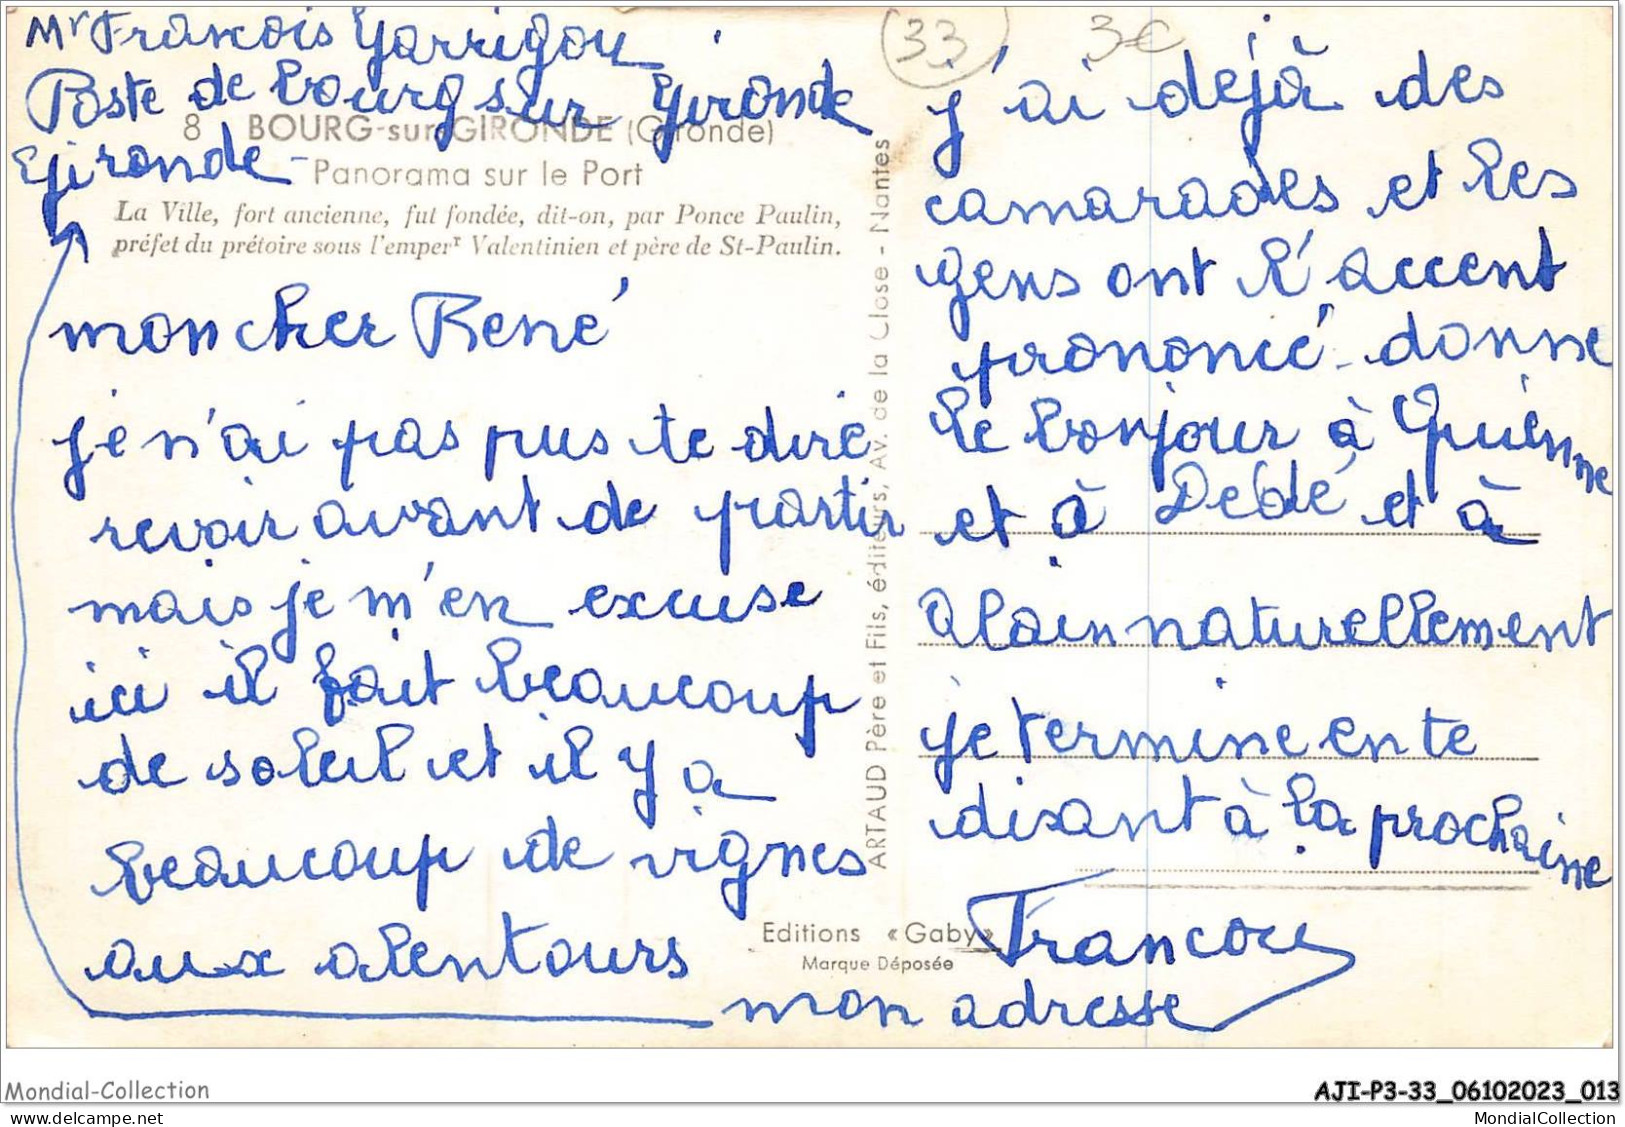 Mr Francois Garrigou
Poste de bourg sur Gironde
Gironde
33
3€
8 - BOURG-sur-GIRONDE (Gironde)
Panorama sur le Port
La Ville, fort ancienne, fut fondée, dit-on, par Ponce Paulin,
préfet du prétoire sous l'emperr Valentinien et père de St-Paulin.
mon cher René
je n'ai pas pus te dire
revoir avant de partir
mais je m'en excuse
ici il fait beaucoup
de soleil et il y a
beaucoup de vignes
aux alentours
ARTAUD Père et Fils, éditeurs, Av. de la Close - Nantes
j'ai dejà des
camarades et les
gens ont l'accent
prononcé. donne
le bonjour à Guienne
et à Dédé et à
Alain naturellement
je termine en te
disant à la prochaine
Editions « Gaby »
Marque Déposée
Francou
mon adresse
Mondial-Collection
AJI-P3-33_06102023_013
www.delcampe.net
MondialCollection